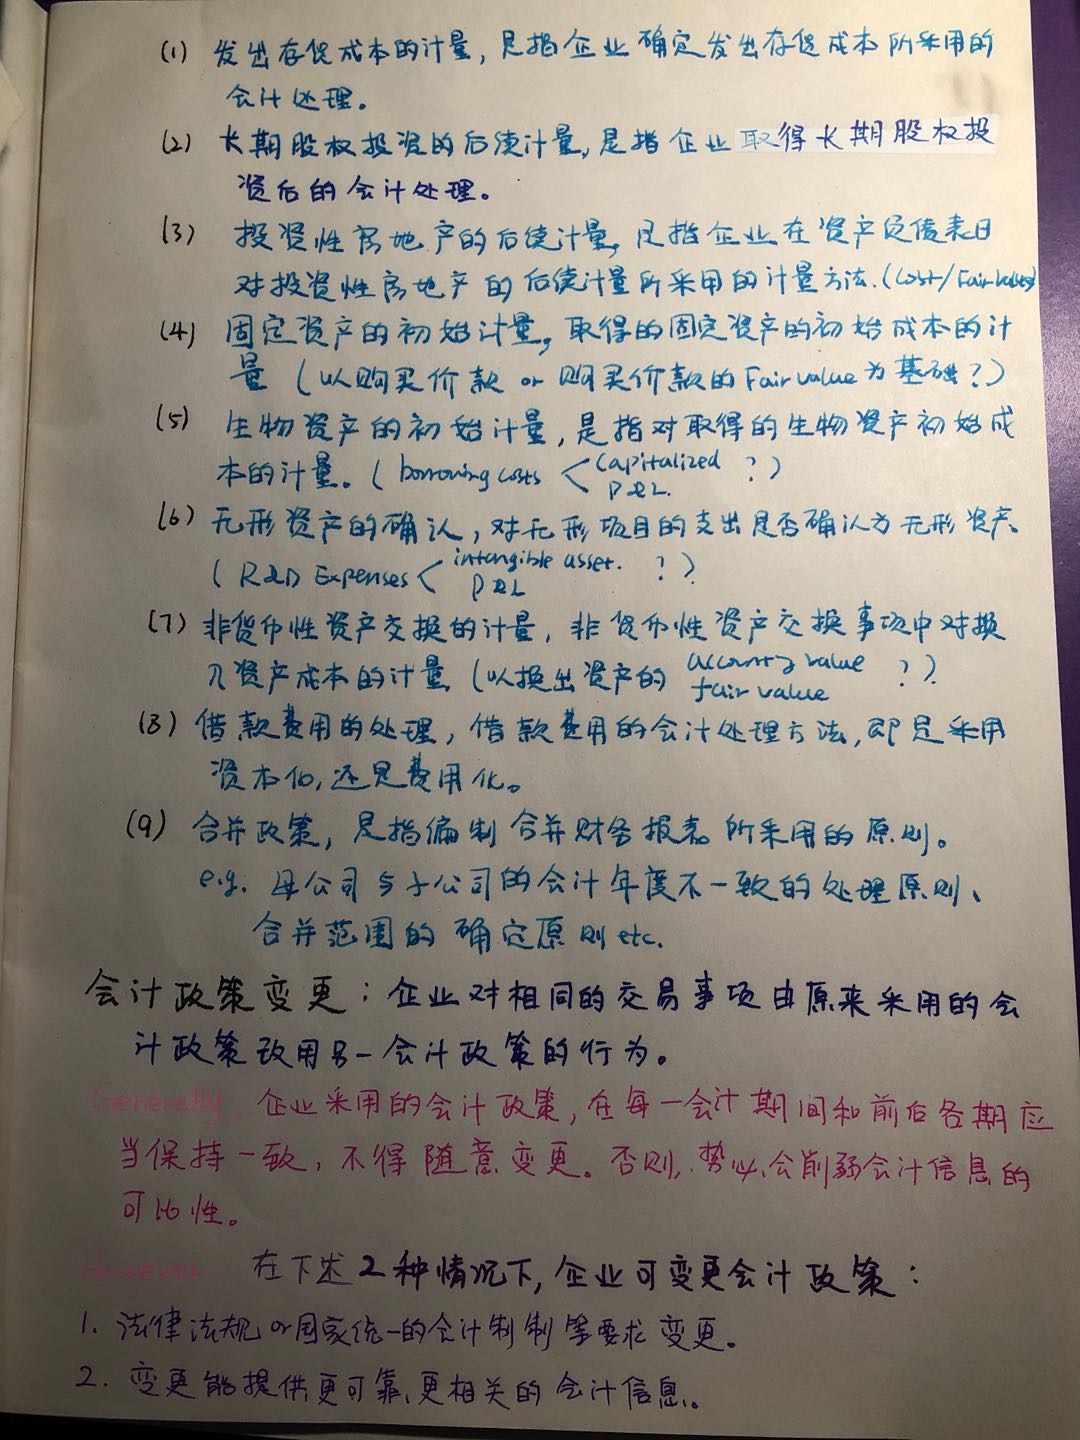 (1) 发出存货成本的计量，是指企业确定发出存货成本所采用的
会计处理。
(2) 长期股权投资的后续计量，是指企业取得长期股权投
资后的会计处理。
(3) 投资性房地产的后续计量，是指企业在资产负债表日
对投资性房地产的后续计量所采用的计量方法.(Cost/Fair value)
(4) 固定资产的初始计量，取得的固定资产的初始成本的计
量（以购买价款 or 购买价款的Fair value为基础？）
(5) 生物资产的初始计量，是指对取得的生物资产初始成
本的计量。( borrowing costs < capitalized ? )
P&L.
(6) 无形资产的确认，对无形项目的支出是否确认为无形资产、
( R&D Expenses < intangible asset. ? )
P&L
(7) 非货币性资产交换的计量，非货币性资产交换事项中对换
入资产成本的计量（以换出资产的 value ?）
fair value
(8) 借款费用的处理，借款费用的会计处理方法，即是采用
资本化，还是费用化。
(9) 合并政策，是指编制合并财务报表所采用的原则。
e.g. 母公司与子公司的会计年度不一致的处理原则、
合并范围的确定原则etc.
会计政策变更：企业对相同的交易事项由原来采用的会
计政策改用另一会计政策的行为。
Generally, 企业采用的会计政策，在每一会计期间和前后各期应
当保持一致，不得随意变更。否则，势必会削弱会计信息的
可比性。
However, 在下述2种情况下，企业可变更会计政策：
1. 法律法规or国家统一的会计制制等要求变更。
2. 变更能提供更可靠、更相关的会计信息。